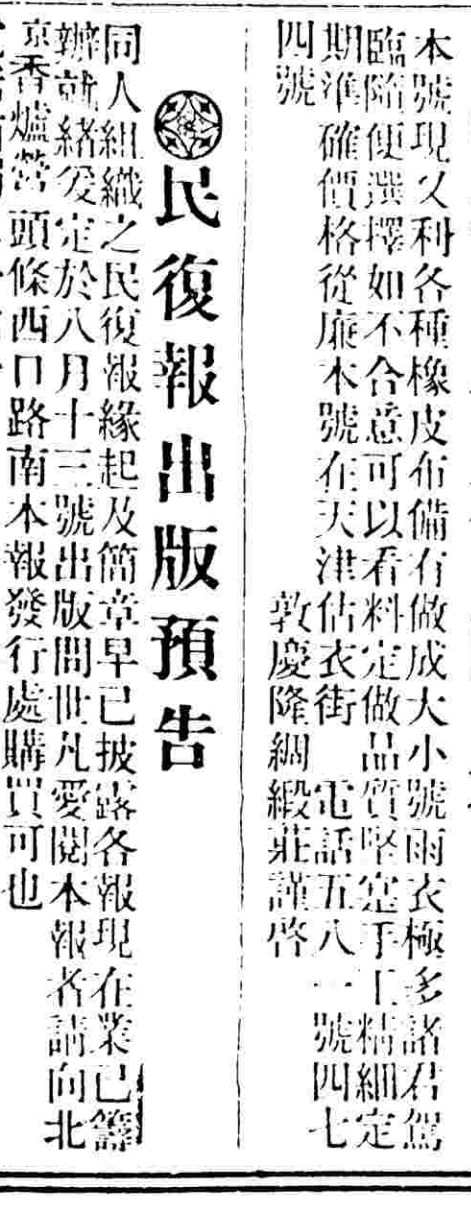 本號現又到各種橡皮布備有做成大小號雨衣極多諸君駕
臨隨便選擇如不合意可以看料定做品質堅寔手工精細定
期準確價格從廉本號在天津估衣街 電話五八一號四七
四號 敦慶隆綢緞莊謹啓
民復報出版預告
同人組織之民復報緣起及簡章早已披露各報現在業已籌
辦就緒爰定於八月十三號出版問世凡愛閱本報者請向北
京香爐營頭條西口路南本報發行處購買可也